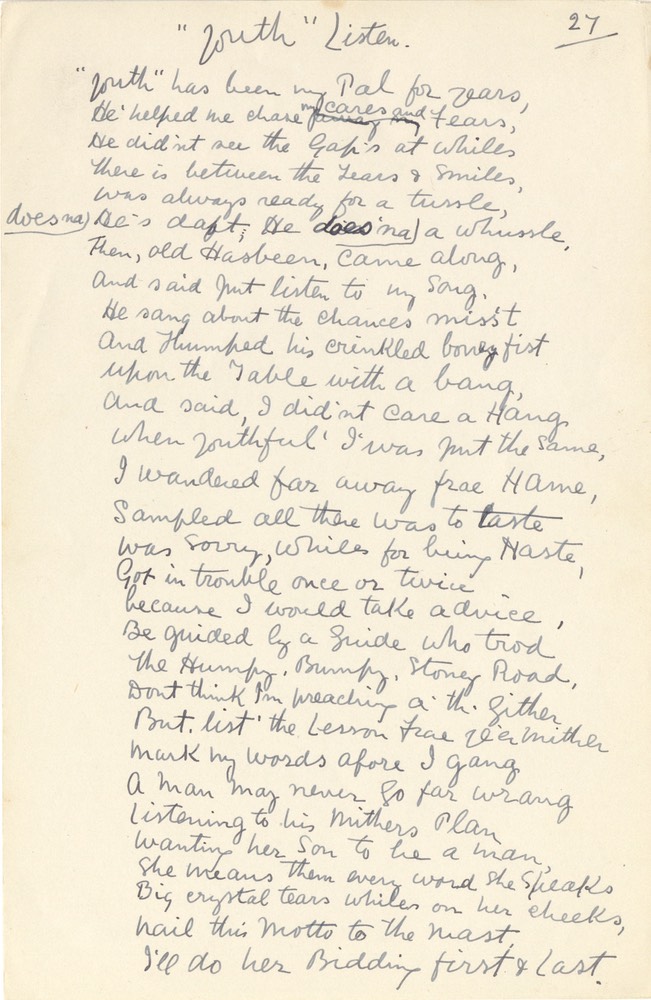 27
"Youth" Listen.
"Youth" has been my Pal for years,
He' helped me chase my cares and fears,
He did'nt see the Gap's at whiles
There is between the Tears & Smiles,
was always ready for a tussle,
doesna) He's daft; He does'na) a whussle,
Then, old Hasbeen, came along,
And said just listen to my Song.
He sang about the chances miss't
And Thumped his crinkled boney fist
upon the Table with a bang,
And said, I did'nt care a Hang
when youthful' I was just the same,
I wandered far away frae Hame,
Sampled all there was to taste
was sorry, whiles for being Haste,
Got in trouble once or twice
because I would take advice,
Be guided by a Guide who trod
The Humpy, Bumpy, Stoney Road,
Dont think I'm preaching a' th' Gither
But, list' the Lesson frae ye'er mither
mark my words afore I gang
A man may never go far wrang
Listening to his Mithers Plan
wanting her Son to be a man,
She means them every word she speaks
Big crystal tears whiles on her cheeks,
nail this Motto to the mast,
I'll do her Bidding first & Last.